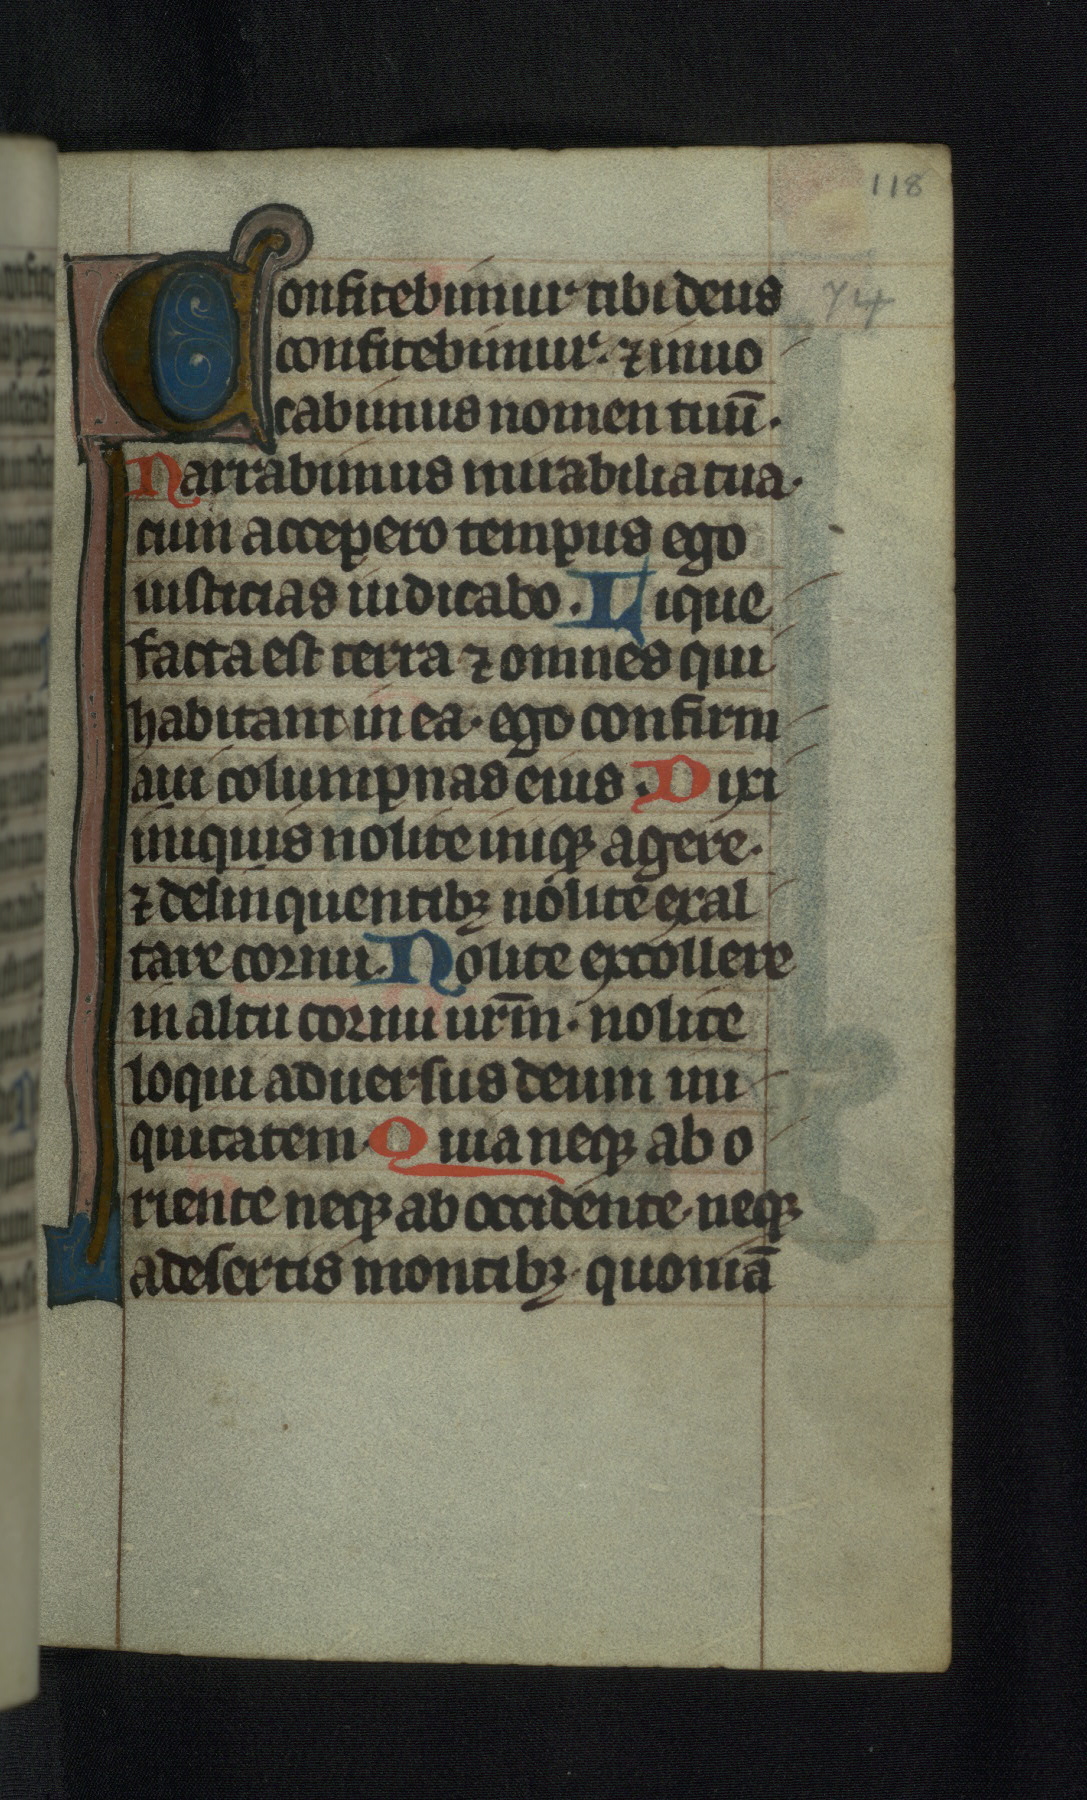 118
74
Confitebimur tibi deus
confitebimur. ⁊ inuo
cabimus nomen tuū.
Narrabimus mirabilia tua.
cum accepero tempus ego
iusticias iudicabo. Lique
facta est terra ⁊ omnes qui
habitant in ea. ego confirm
aui columpnas eius. Dixi
iniquis nolite iniqꝫ agere.
⁊ delinquentibꝫ nolite exal
tare cornu. Nolite extollere
in altu cornu ur̄m. nolite
loqui aduersus deum ini
quitatem. Quia neqꝫ ab o
riente neqꝫ ab occidente. neqꝫ
a desertis montibꝫ. quoniā